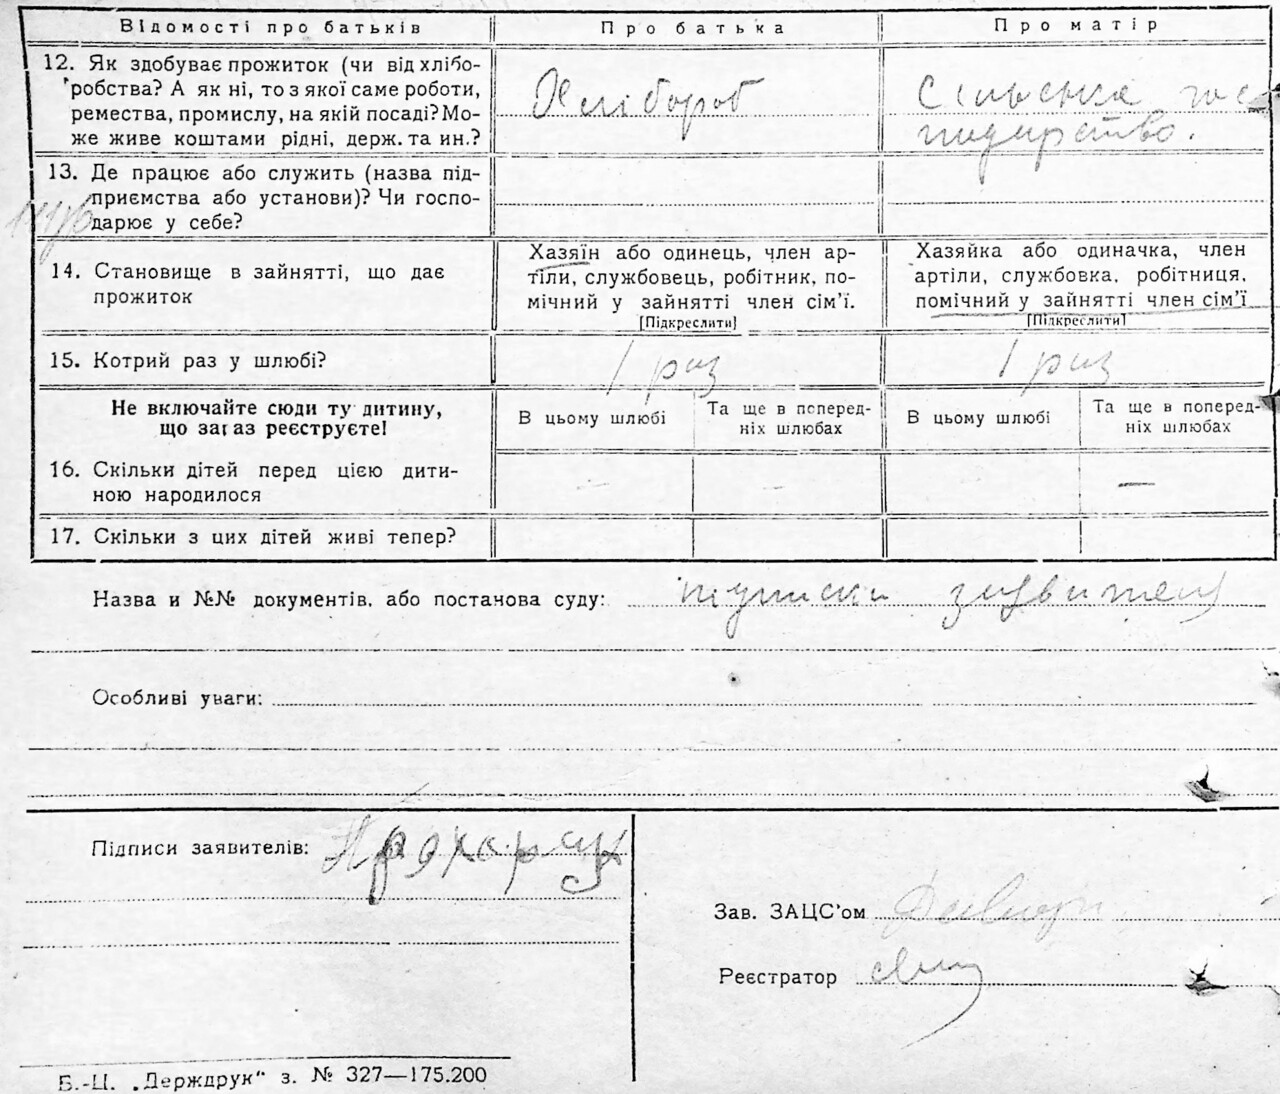 Відомості про батьків Про батька Про матір
12. Як здобуває прожиток (чи від хлібо-
робства? А як ні, то з якої саме роботи,
ремества, промислу, на якій посаді? Мо-
же живе коштами рідні, держ. та ин.?
Хлібороб
Сільське гос
подарство.
13. Де працює або служить (назва під-
приємства або установи)? Чи госпо-
дарює у себе?
14. Становище в зайнятті, що дає
прожиток
Хазяїн або одинець, член ар-
тіли, службовець, робітник, по-
мічний у зайнятті член сім'ї.
[Підкреслити]
Хазяйка або одиначка, член
артіли, службовка, робітниця,
помічний у зайнятті член сім'ї
[Підкреслити]
15. Котрий раз у шлюбі? 1 раз 1 раз
Не включайте сюди ту дитину,
що зараз реєструєте!
В цьому шлюбі
Та ще в поперед-
ніх шлюбах
В цьому шлюбі
Та ще в поперед-
ніх шлюбах
16. Скільки дітей перед цією дити-
ною народилося
— — —
17. Скільки з цих дітей живі тепер?
Назва и №№ документів, або постанова суду:
Особливі уваги:
Підписи заявителів: Прохорчук
Зав. ЗАЦС'ом
Реєстратор
Б.-Ц. „Держдрук" з. № 327—175.200